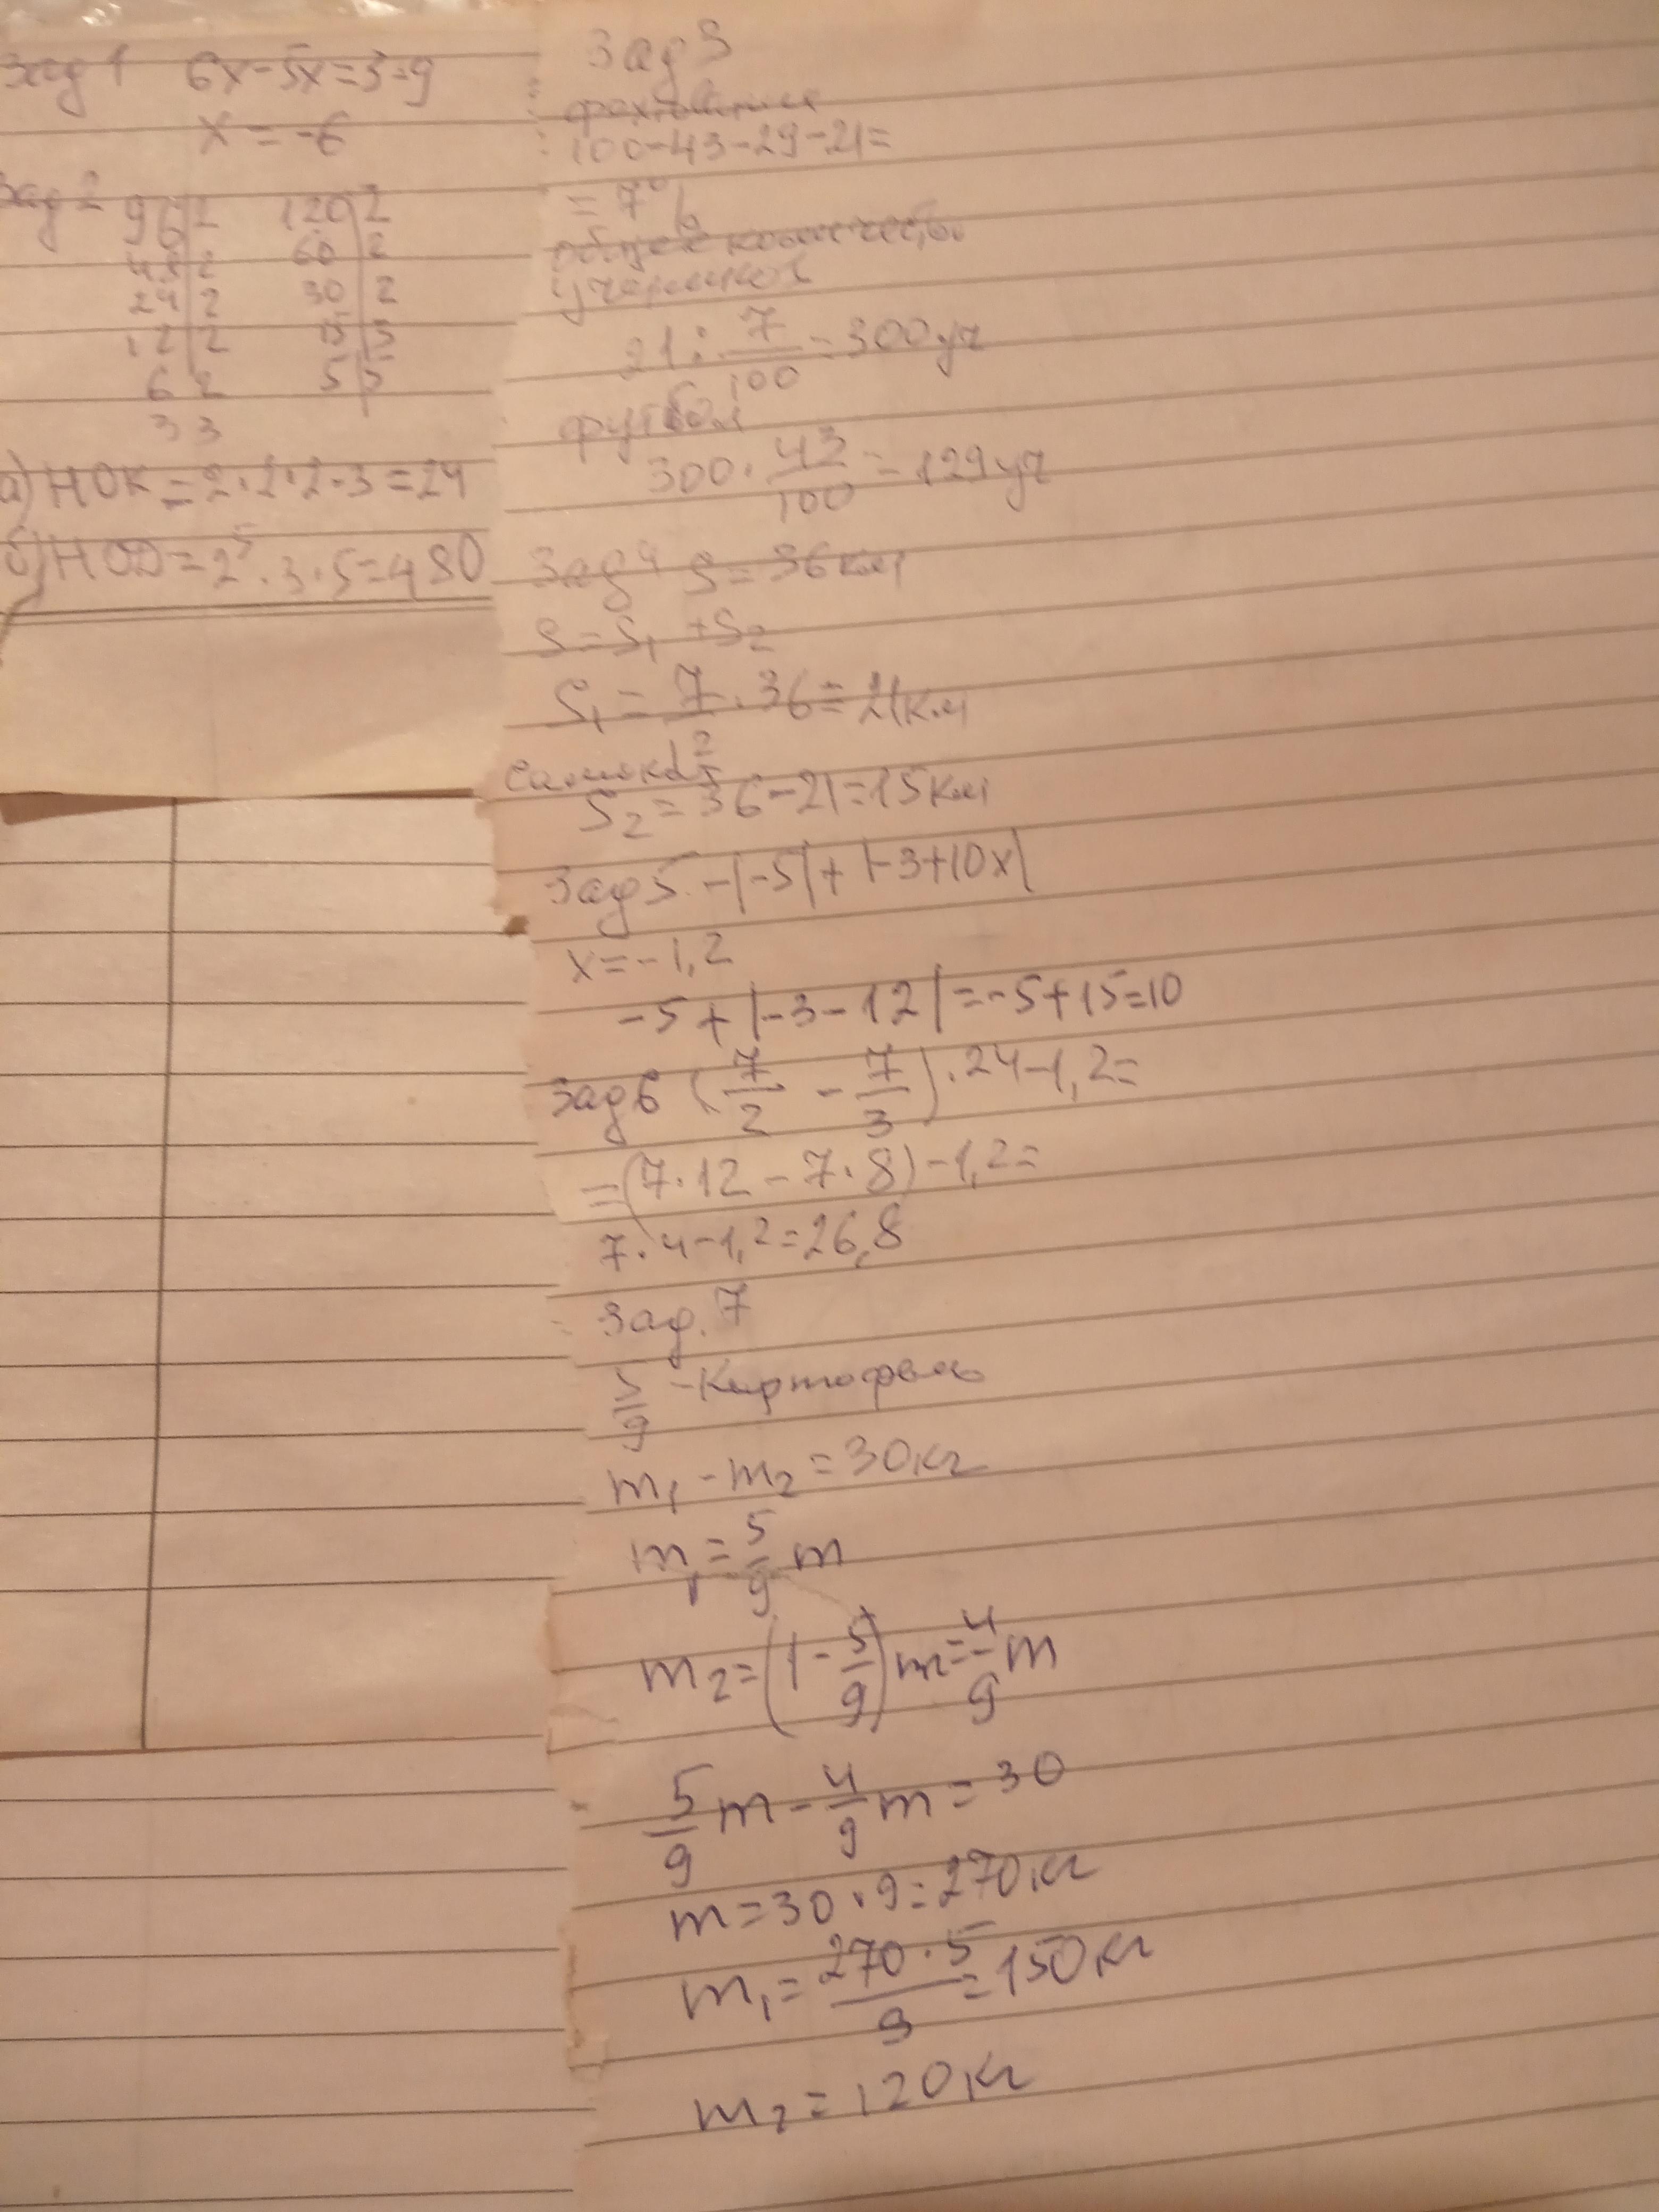 Зад 1 6x-5x=3-9
x = -6
Зад 2 96|2 120|2
48|2 60|2
24|2 30|2
12|2 15|3
6 2 5|5
3 3
а) НОК = 2·2·2·3=24
б) НОД=2⁵·3·5=480
Зад 3
фехтование
100-43-29-21=
= 7%
общее количество
учеников
21 : 7/100 = 300 уч
футбол
300 · 43/100 = 129 уч
Зад 4 S = 36 км
S = S₁ + S₂
S₁ = 7/12 · 36 = 21 км
S₂ = 36-21=15 км
Зад 5. -|-5|+|-3+10x|
x=-1,2
-5+|-3-12|=-5+15=10
Зад 6 (7/2 - 7/3)·24-1,2=
=(7·12-7·8)-1,2=
7·4-1,2=26,8
Зад. 7
5/9 - Картофель
m₁ - m₂ = 30 кг
m₁ = 5/9 m
m₂=(1-5/9)m=4/9 m
5/9 m - 4/9 m = 30
m=30·9=270 кг
m₁= 270·5/9 =150 кг
m₂ = 120 кг